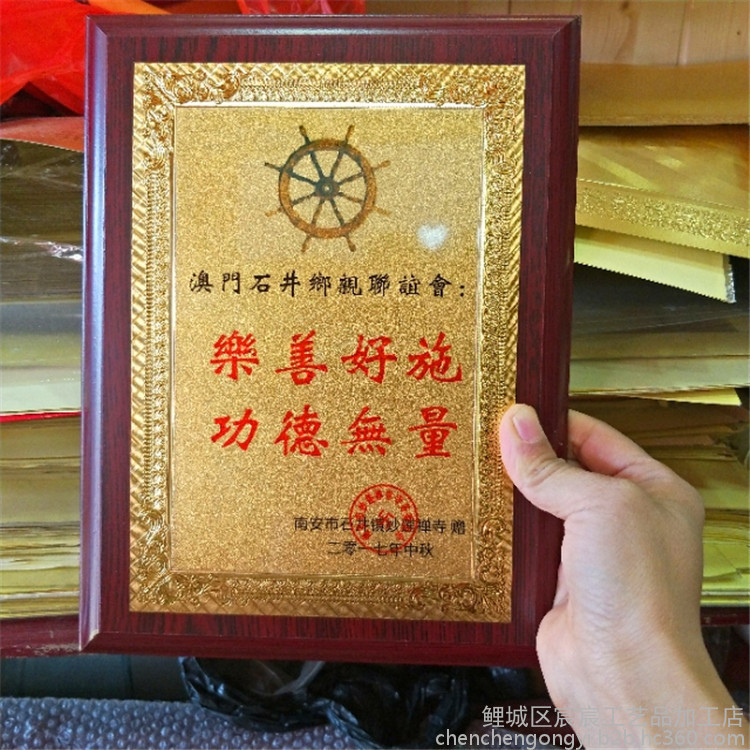 澳門石井鄉親聯誼會：
樂善好施
功德無量
南安市石井镇妙莲禅寺 赠
二零一七年中秋
鲤城区宸宸工艺品加工店